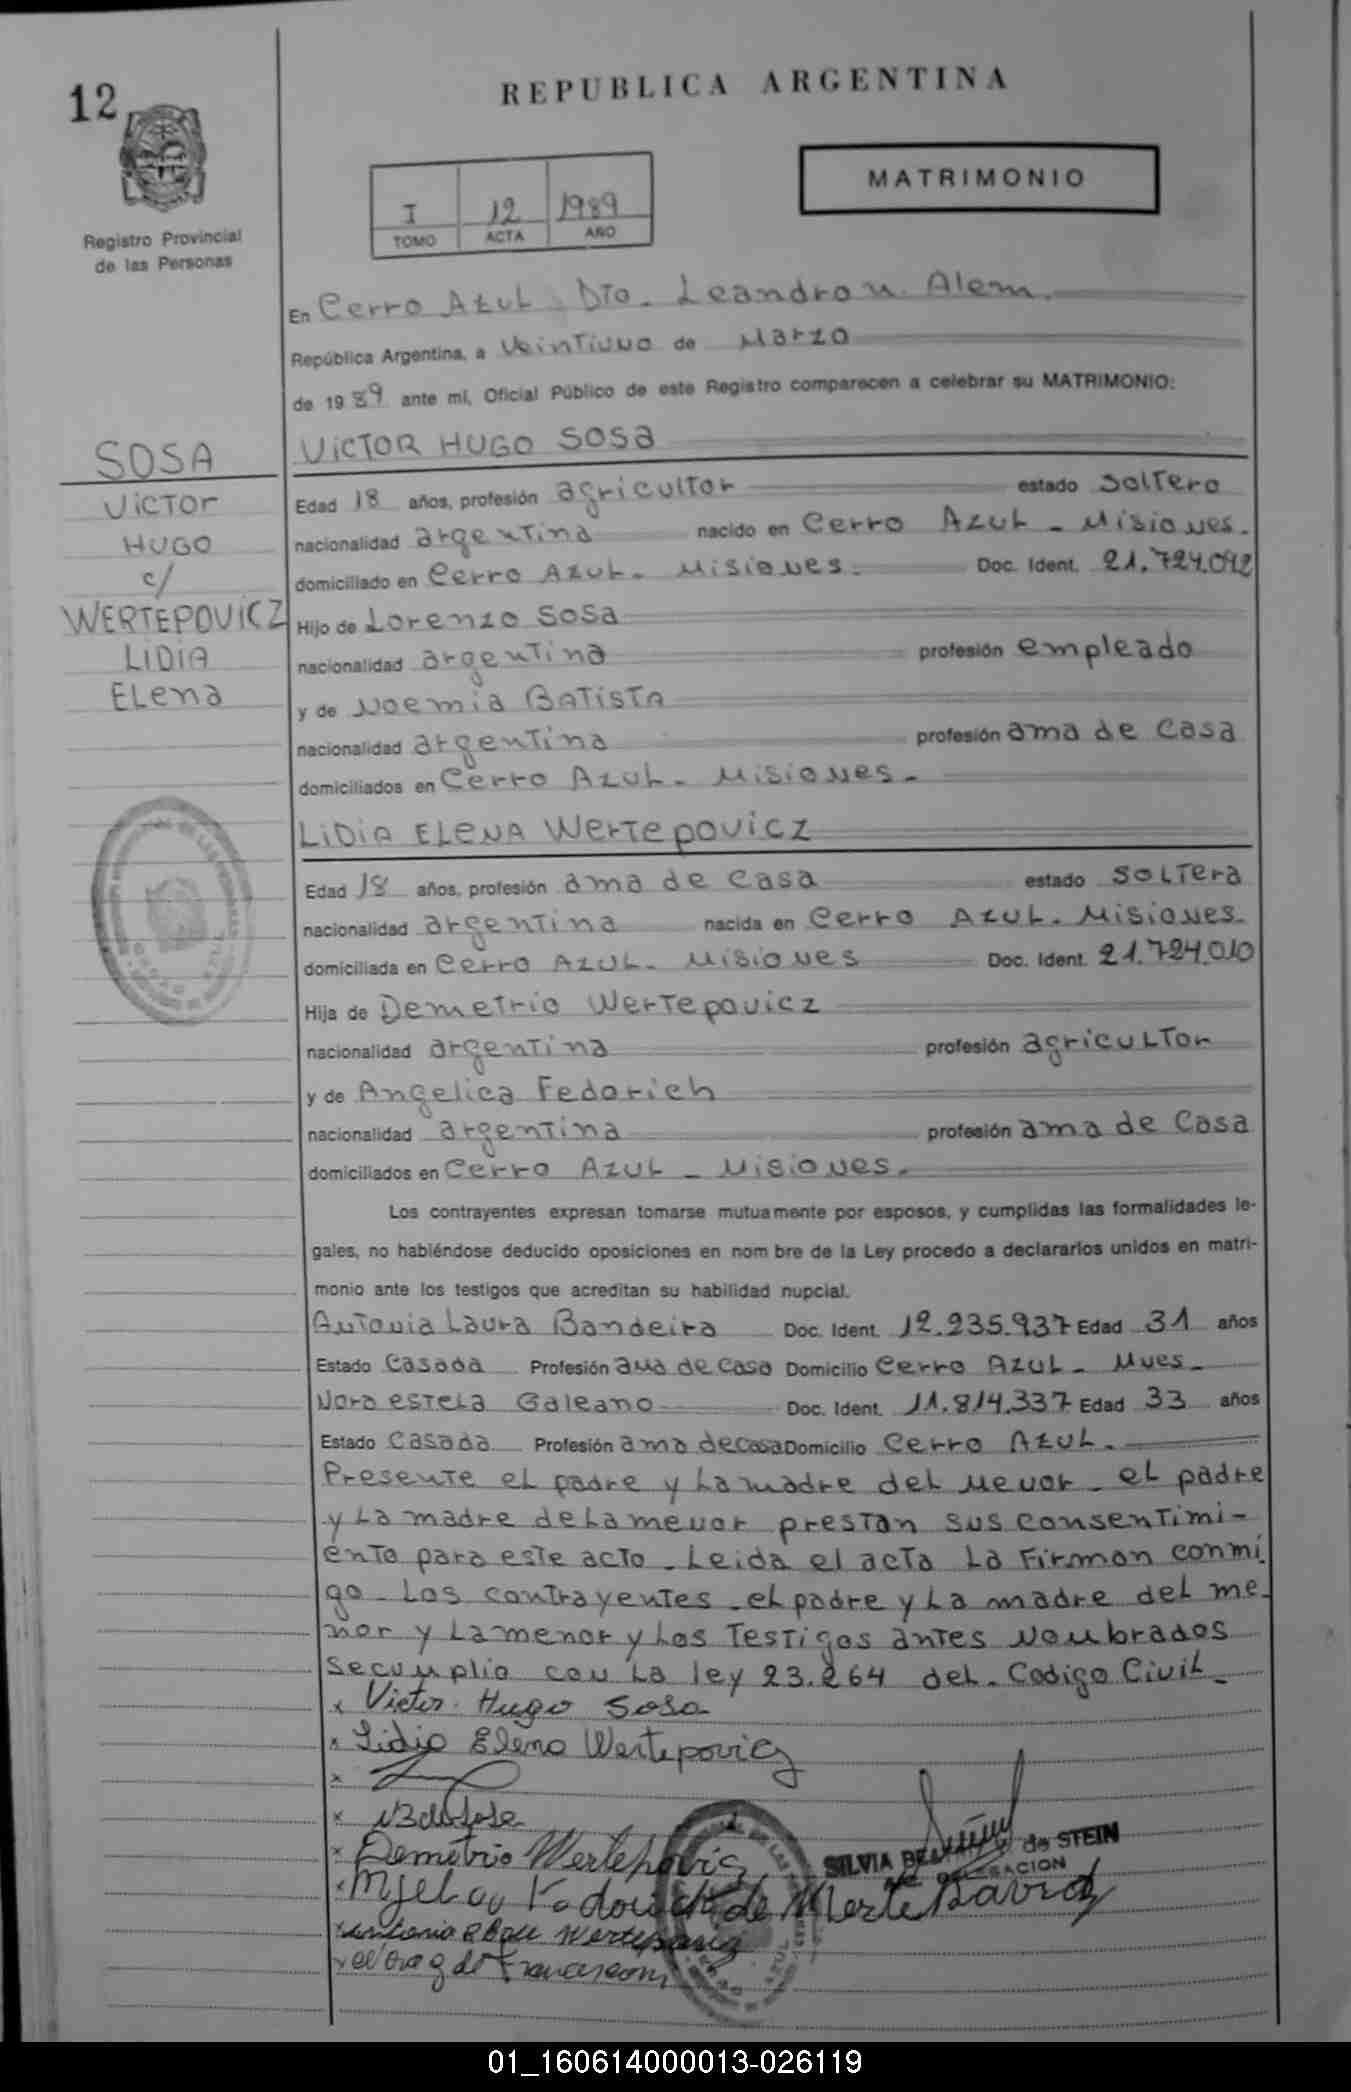 12
REPUBLICA ARGENTINA
MATRIMONIO
I 12 1989
TOMO ACTA AÑO
Registro Provincial
de las Personas
En Cerro AZUL Dto. Leandro N. Alem.
República Argentina, a veintiuno de Marzo
de 1989 ante mí, Oficial Público de este Registro comparecen a celebrar su MATRIMONIO:
SOSA
VICTOR
HUGO
c/
WERTEPOVICZ
LIDIA
ELena
VICTOR HUGO SOSA
Edad 18 años, profesión agricultor estado soltero
nacionalidad argentina nacido en Cerro AZUL - Misiones.
domiciliado en Cerro AZUL - Misiones. Doc. Ident. 21.724.092
Hijo de Lorenzo SOSA
nacionalidad argentina profesión empleado
y de Noemia BATISTA
nacionalidad argentina profesión ama de casa
domiciliados en Cerro AZUL - Misiones -
LIDIA ELENA Wertepovicz
Edad 18 años, profesión ama de casa estado SOLTERA
nacionalidad argentina nacida en Cerro AZUL - Misiones-
domiciliada en Cerro AZUL - Misiones Doc. Ident. 21.724.010
Hija de Demetrio Wertepovicz
nacionalidad argentina profesión agricultor
y de Angelica Fedorich
nacionalidad argentina profesión ama de casa
domiciliados en Cerro AZUL - Misiones.
Los contrayentes expresan tomarse mutuamente por esposos, y cumplidas las formalidades le-
gales, no habiéndose deducido oposiciones en nom bre de la Ley procedo a declararlos unidos en matri-
monio ante los testigos que acreditan su habilidad nupcial.
Antonia Laura Bandeira Doc. Ident. 12.235.937 Edad 31 años
Estado casada Profesión ama de casa Domicilio Cerro AZUL - Mnes-
Nora estela Galeano Doc. Ident. 11.814.337 Edad 33 años
Estado casada Profesión ama de casa Domicilio Cerro AZUL.
Presente el padre y la madre del menor - el padre
y la madre de la menor prestan sus consentimi-
ento para este acto - Leida el acta la firman conmi
go - Los contrayentes - el padre y la madre del me-
nor y la menor y los testigos antes nombrados
Se cumplio con la ley 23.264 del - Codigo Civil
x Victor Hugo Sosa
x Lidia Elena Wertepovicz
x
x
x Demetrio Wertepovicz
SILVIA de STEIN
DELEGACION
x de
x
x
01_160614000013-026119